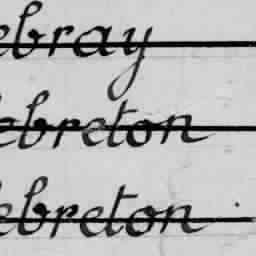 ebray
ebreton
ebreton